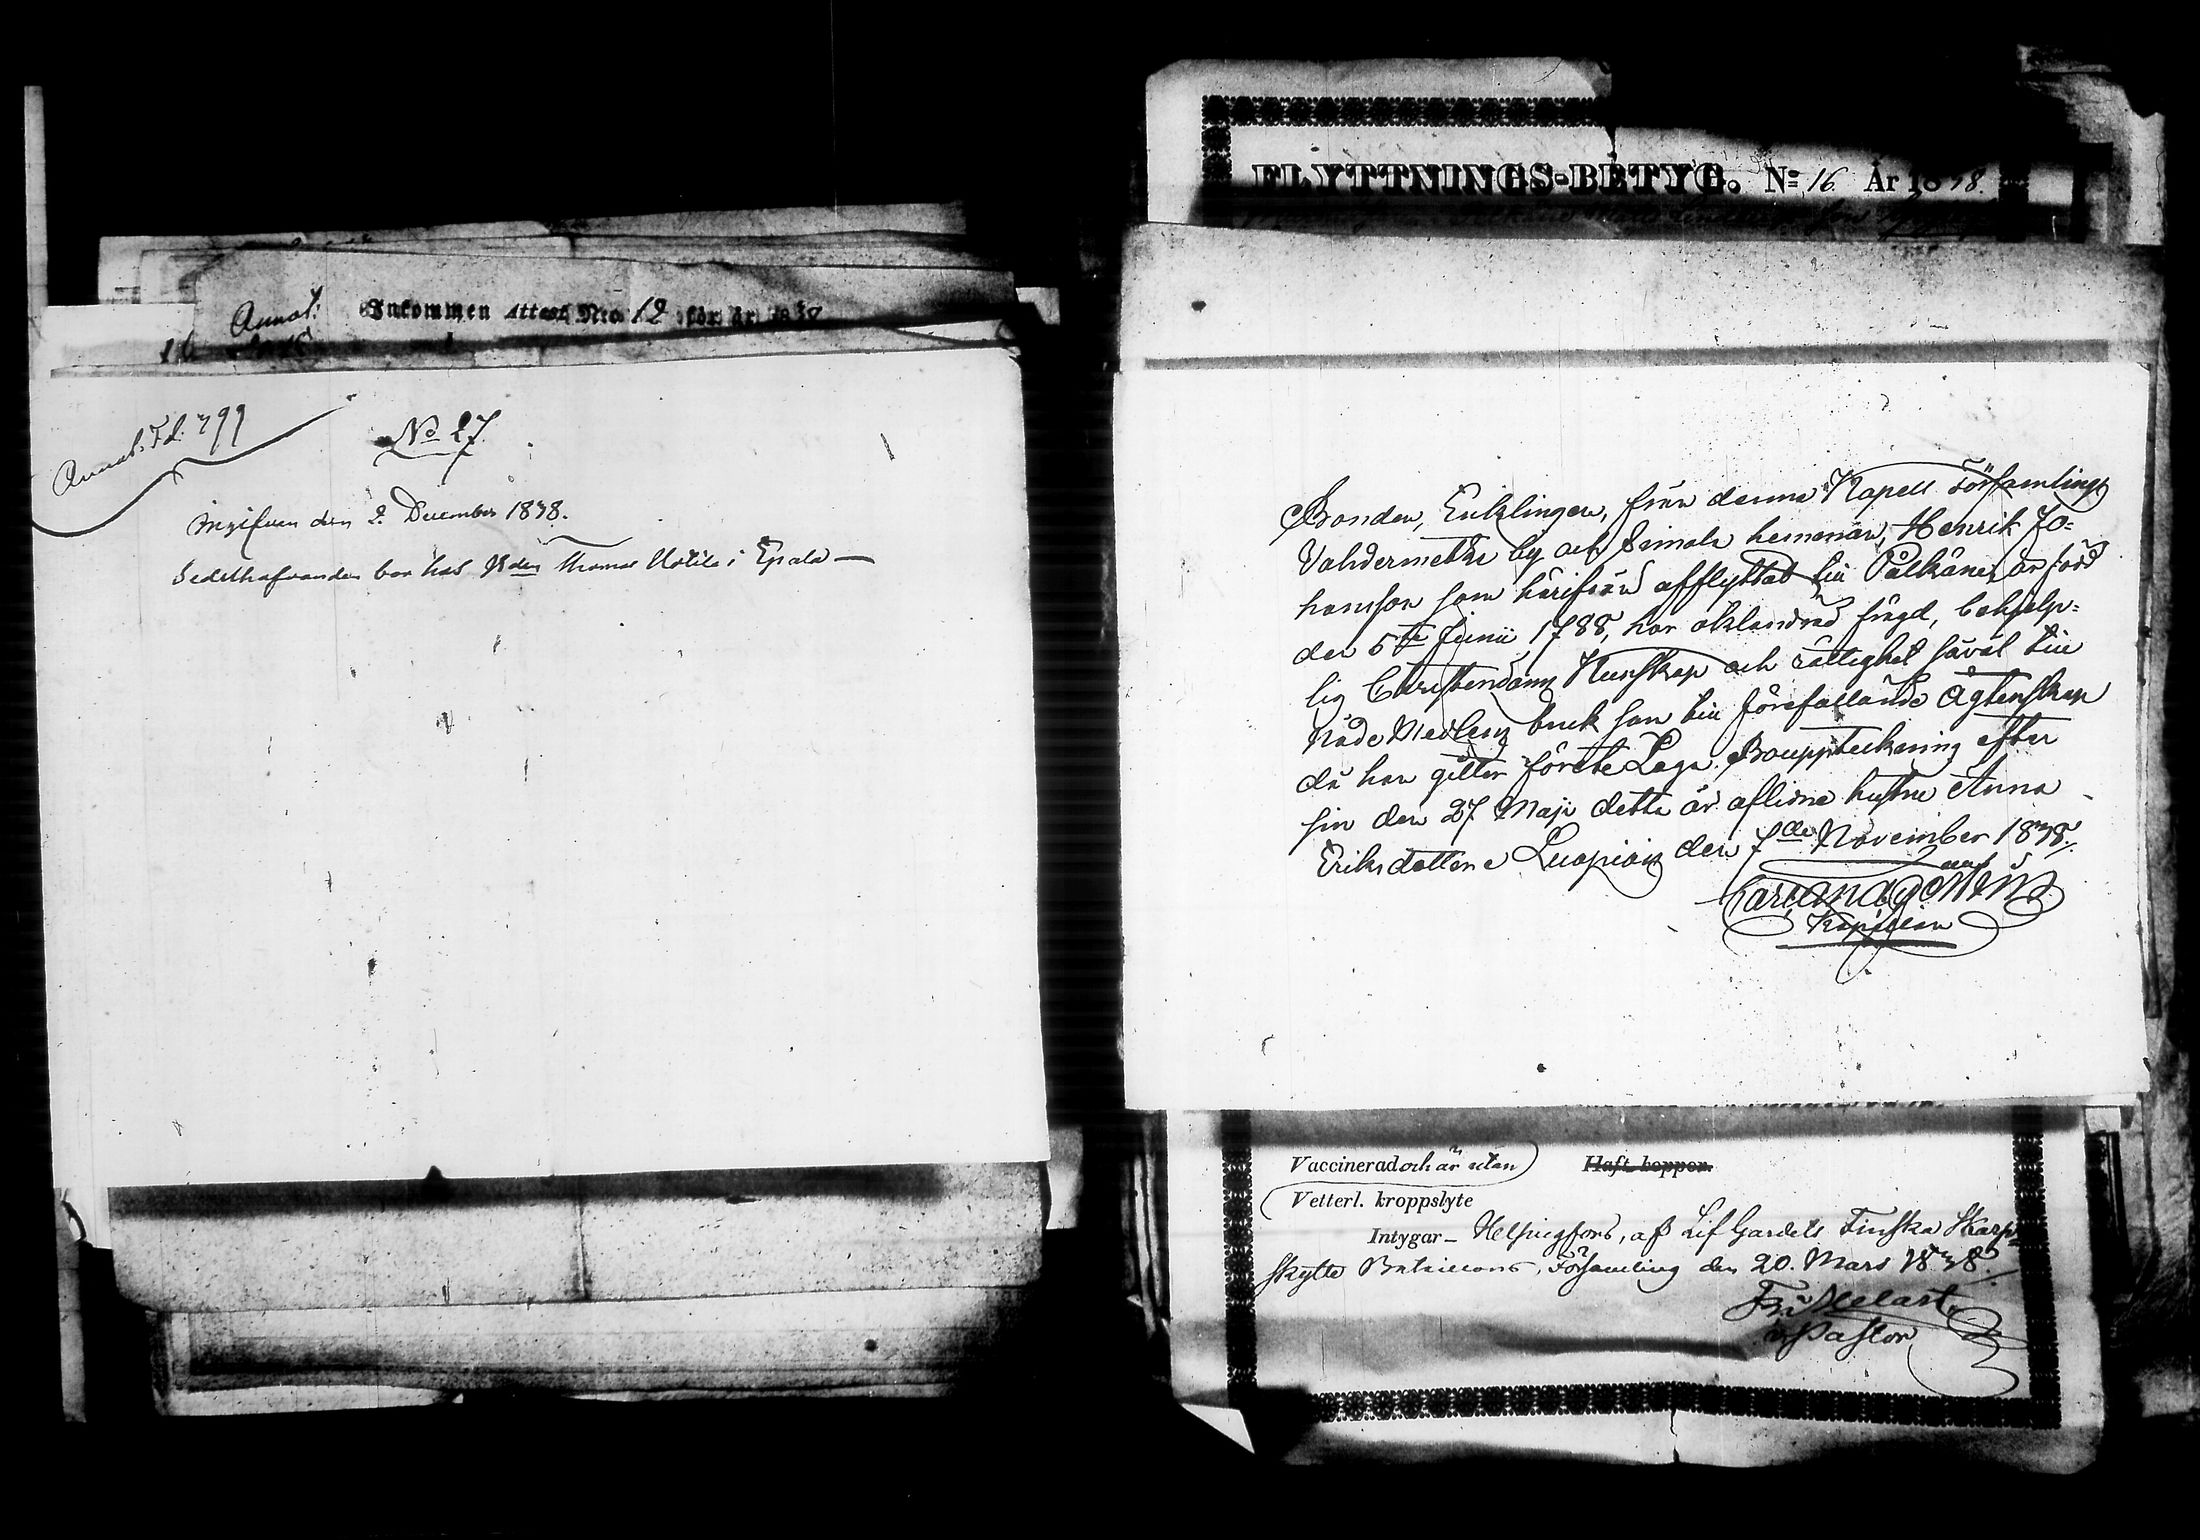 Annot: Inkommen Attest N:o 12 för år 1838
16
Annot. Fol. 399
No 27.
Ingifven den 2. December 1838.
Sedelhafvanden bor hos Bden Thomas Uotila i Epala —
FLYTTNINGS-BETYG. No 16 År 1838.
Bonden, Enklingen, från denna Kapell Församlings
Vahdermetke by och Seimola hemman, Henrik Jo-
hansson som härifrån afflyttat till Pälkäne, är född
den 5te Junii 1788, har oklandrad frägd, behjelp-
lig Christendoms Kunskap och rättighet såväl till
Nåde Medlens bruk som till förefallande Ägtenskap
då han gitter förete Laga Bouppteckning efter
sin den 27 Maji detta år aflidna hustru Anna
Eriksdotter. Luopiois den 7de November 1838.
Kapellan
Vaccinerad och är utan Haft koppor.
Vetterl. kroppslyte
Intygar – Helsingfors, af Lif Gardets Finska Skarp-
skytte Bataillons, Församling den 20. Mars 1838
v Pastor